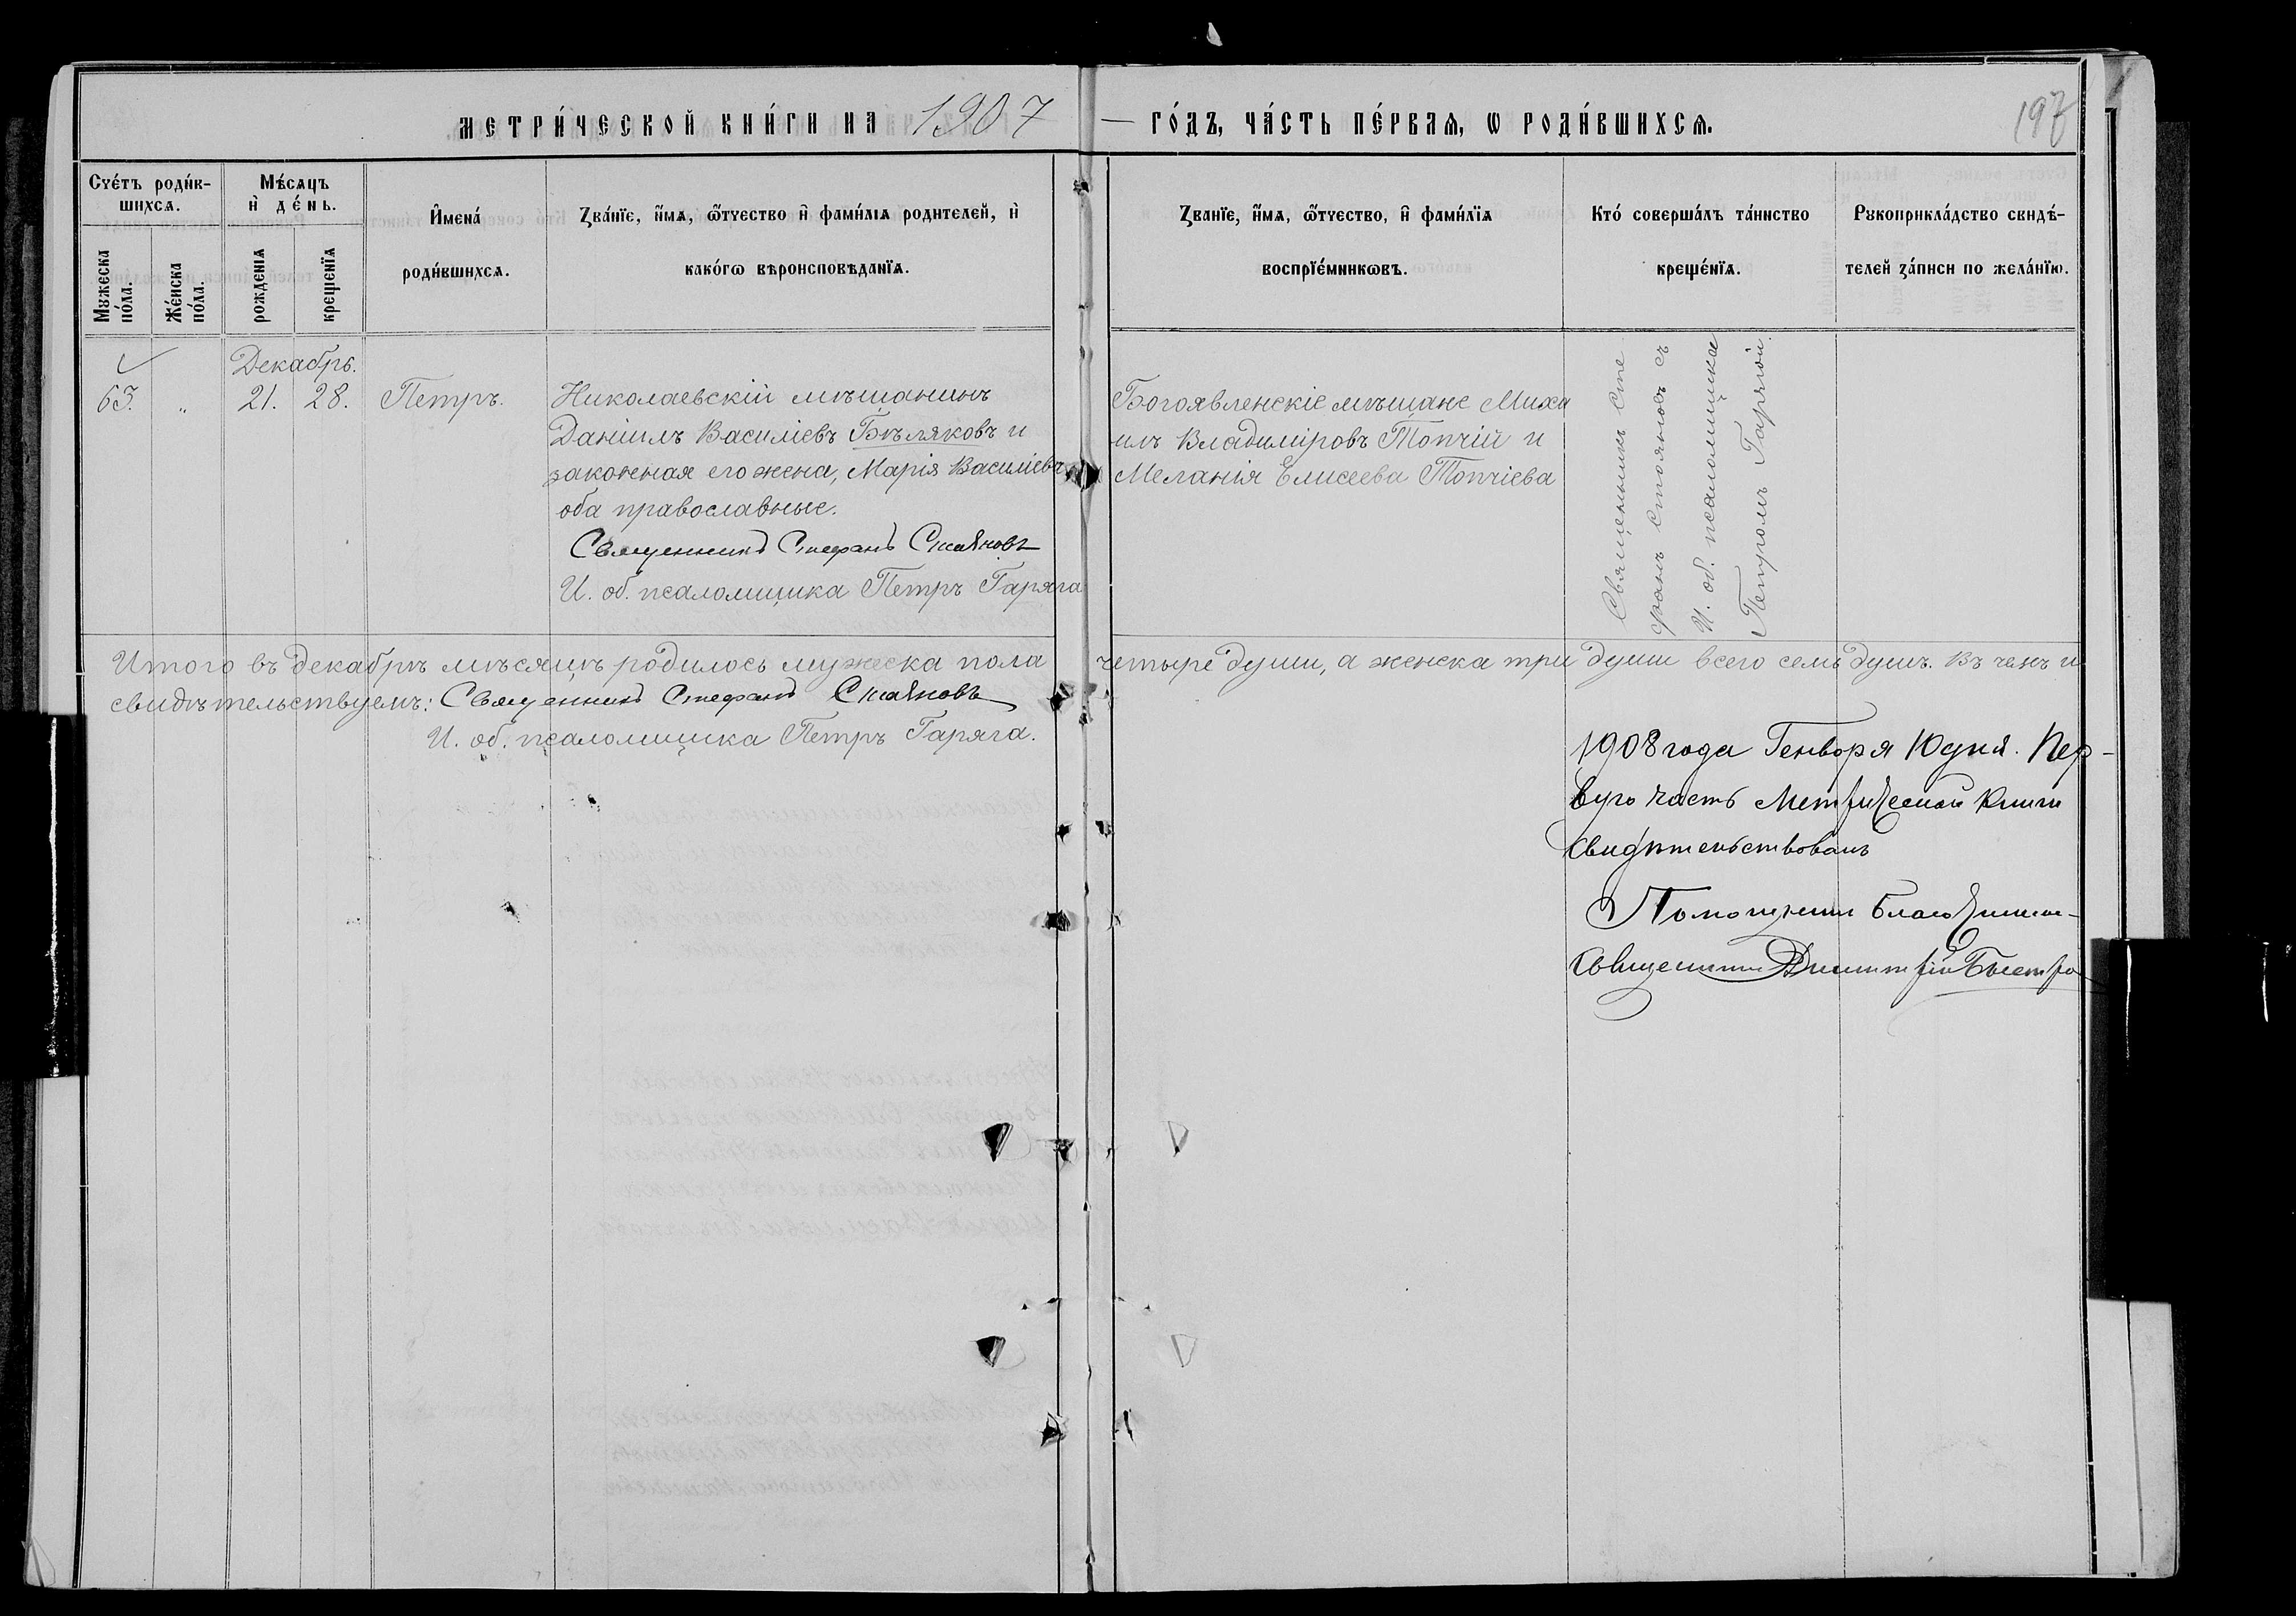 МЕТРИ́ЧЕСКОЙ КНИ́ГИ НА 1907 — ГО́ДЪ, ЧА́СТЬ ПЕ́РВАѦ, Ѡ РОДИ́ВШИХСѦ.
197
Счéтъ роди́в-
шихсѧ.
Мýжеска
пóла.
Жéнска
пóла.
Мѣ́сѧцъ
и҆ дéнь.
рожденіѧ
крещенїѧ
И҆менá
роди́вшихсѧ.
Ꙁвáнїе, и҆́мѧ, ѻ҆́тчество и҆ фами́лїѧ родителей, и҆
какóгѡ вѣроисповѣданїѧ.
Ꙁванїе, и҆́мѧ, ѻ҆́тчество, и҆ фами́лїѧ
воспрїéмникѡвъ.
Ктó совершáлъ тáинство
крещéнїѧ.
Рꙋкоприклáдство свидѣ́-
телей зáписи по желáнїю.
Декабрь.
63. „ 21. 28. Петръ.
Николаевскій мѣщанинъ
Даніилъ Василіевъ Бѣляковъ и
законная его жена, Марія Василіева
оба православные.
Священникъ Стефанъ Стояновъ
И. об. псаломщика Петръ Гаряга
Богоявленскіе мѣщане Миха
илъ Владиміровъ Топчій и
Меланія Елисеева Топчіева
Священникъ Сте
фанъ Стояновъ съ
И. об. псаломщика
Петромъ Гарягой.
Итого въ декабрѣ мѣсяцѣ родилось мужеска пола четыре души, а женска три души всего семь душъ. Въ чемъ и
свидѣтельствуемъ: Священникъ Стефанъ Стояновъ
И. об. псаломщика Петръ Гаряга.
1908 года Генворя 10 дня. Пер-
вую часть Метрической Книги
свидѣтельствовалъ
Помощникъ Благочиннаго
Священникъ Димитрій